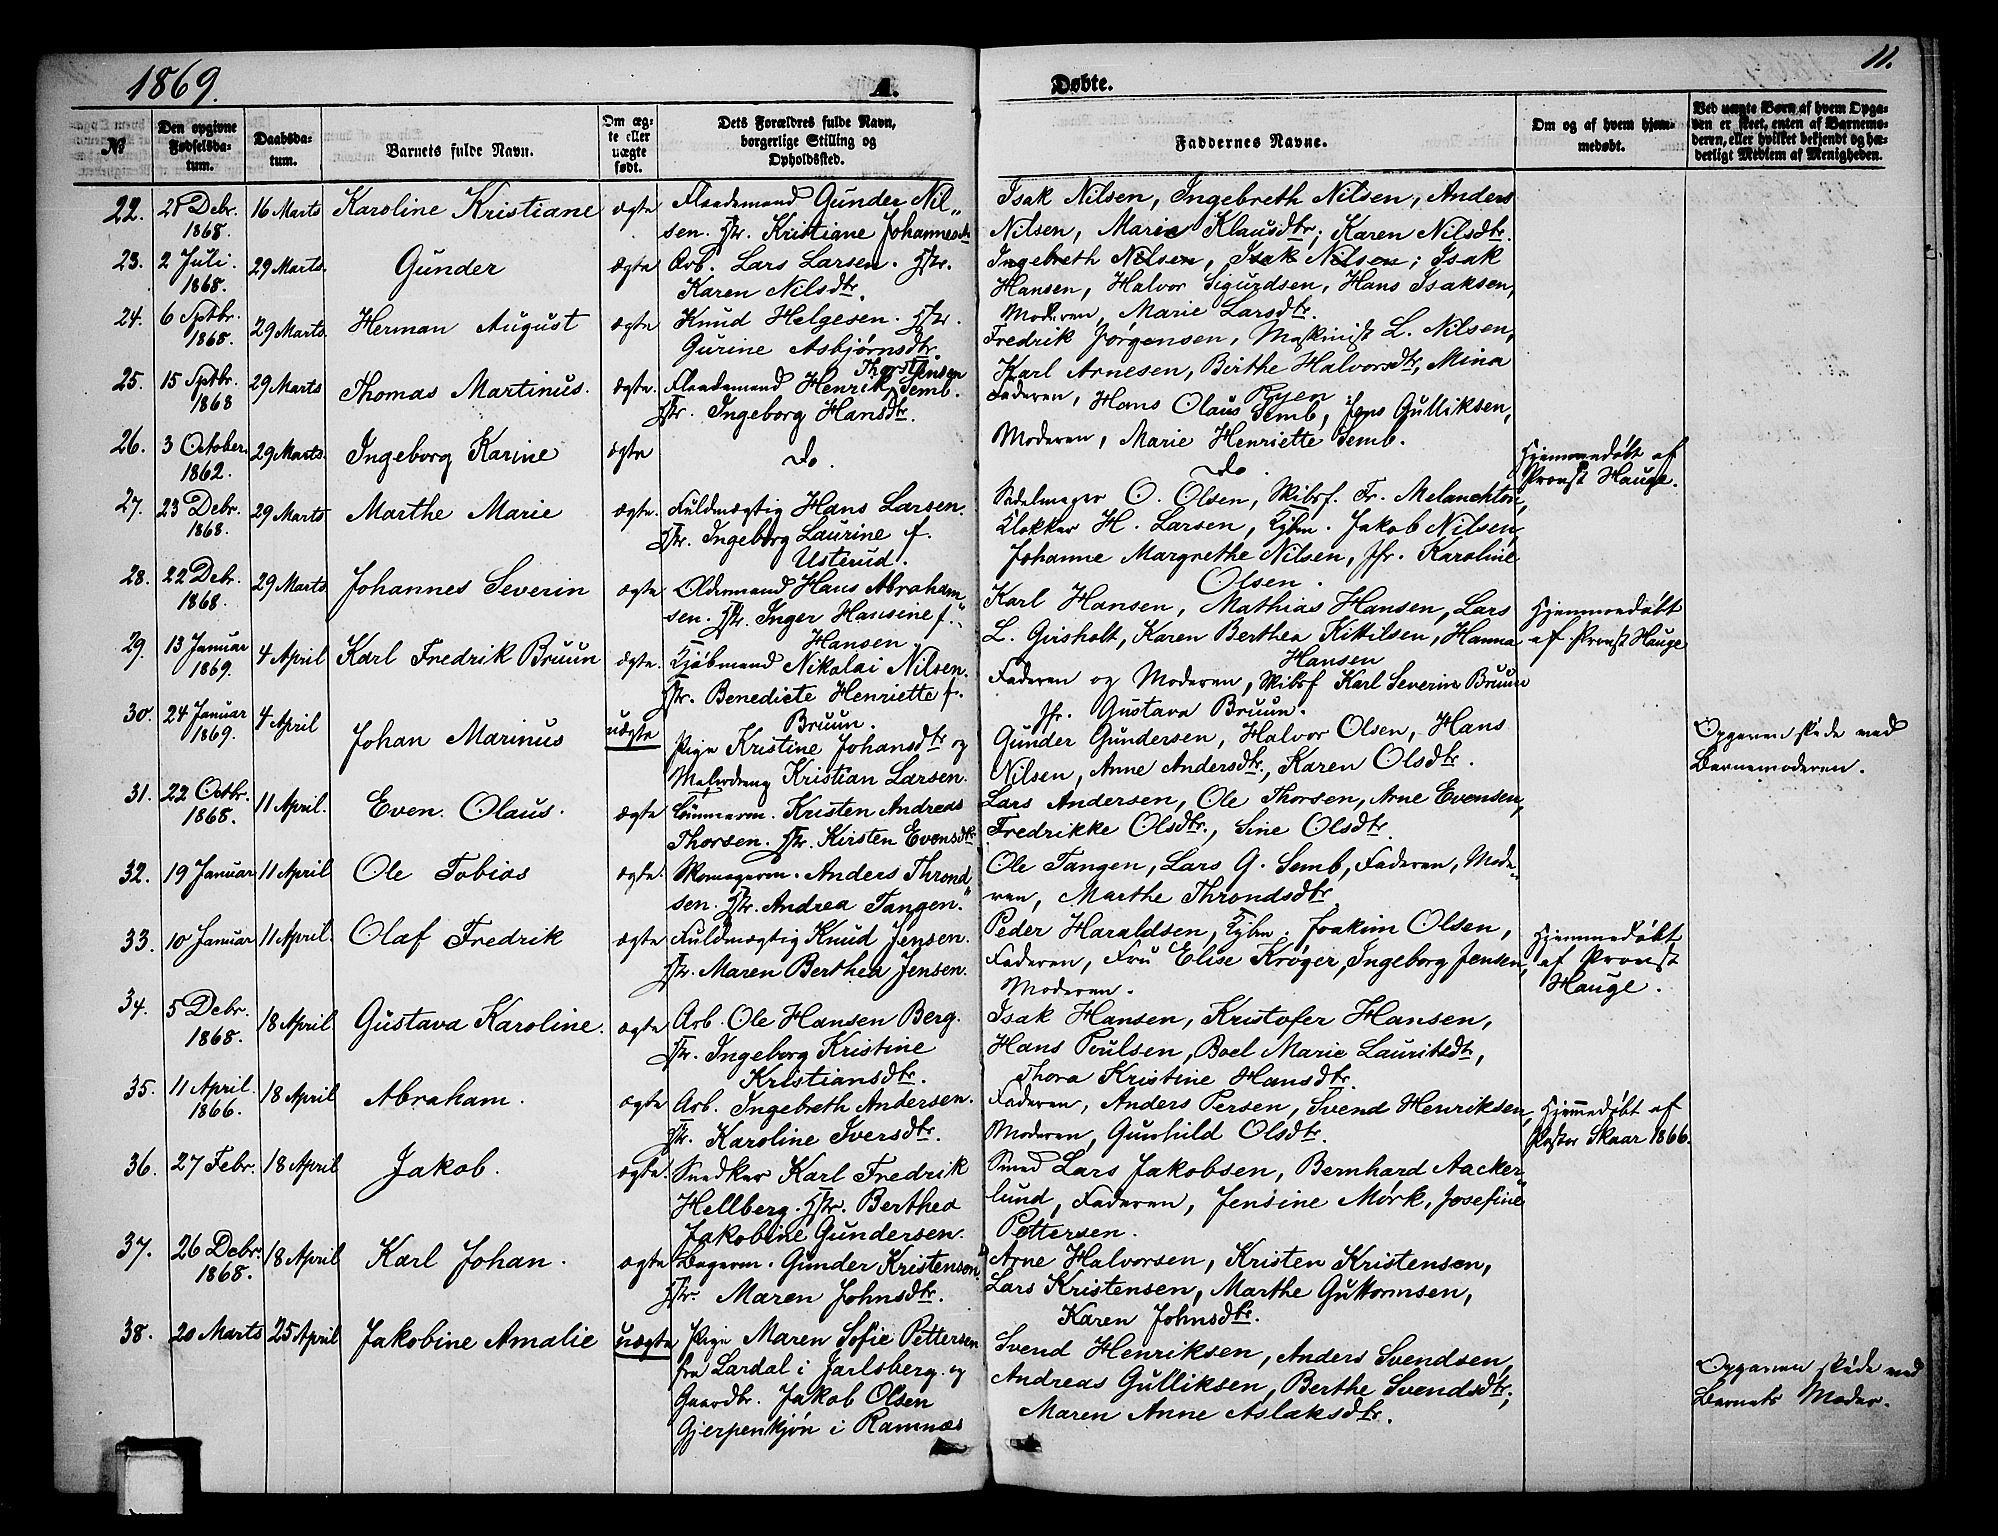 1869.
A.
Døbte.
11.
No
Den opgivne Fødselsdatum.
Daabsdatum.
Barnets fulde Navn.
Om ægte eller uægte født.
Dets Forældres fulde Navn, borgerlige Stilling og Opholdssted.
Faddernes Navne.
Om og af hvem hjemmedøbt.
Ved uægte Børn af hvem Opgaden er skeet, enten af Barnemoderen, eller hvilket bekjendt og hæderligt Medlem af Menigheden.
22. 28 Debr. 1868. 16 Marts Karoline Kristiane ægte Flaademand Gunder Nil-
sen. Hstr. Kristiane Johannesdtr
Isak Nilsen, Ingebreth Nilsen, Anders
Nilsen, Marie Klausdtr; Karen Nilsdtr.
23. 2 Juli. 1868. 29 Marts. Gunder ægte Arb. Lars Larsen. Hstr.
Karen Nilsdtr.
Ingebreth Nilsen, Isak Nilsen; Isak
Hansen, Halvor Sigurdsen, Hans Isaksen,
Moderen, Marie Larsdtr.
24. 6 Sptbr. 1868. 29 Marts. Herman August ægte Knud Helgesen. Hstr.
Gurine Asbjørnsdtr.
Fredrik Jørgensen, Maskinist L. Nilsen,
Karl Arnesen, Birthe Halvorsdtr, Mina
Ryen
25. 15 Sptbr. 1868 29 Marts Thomas Martinus. ægte. Flaademand Henrik Thorstensen Semb.
Hstr. Ingeborg Hansdtr.
Faderen, Hans Olaus Semb, Jens Gulliksen,
Moderen, Marie Henriette Semb.
26. 3 October. 1862. 29 Marts. Ingeborg Karine ægte
do.
do.
Hjemmedøbt af
Provst Hauge.
27. 23 Debr. 1868. 29 Marts Marthe Marie ægte. Fuldmægtig Hans Larsen.
Hstr. Ingeborg Laurine f.
Usterud.
Sadelmager O. Olsen, Skibsf. Fr. Melanchton,
Klokker H. Larsen, Kjbm. Jakob Nilsen,
Johanne Margrethe Nilsen, Jfr. Karoline
Olsen.
28. 22 Debr. 1868. 29 Marts Johannes Severin ægte. Oldermand Hans Abraham-
sen. Hstr. Inger Hansine f.
Hansen
Karl Hansen, Mathias Hansen, Lars
L. Girsholt, Karen Berthea Kittilsen, Hanna
Hansen
Hjemmedøbt
af Provst Hauge
29. 13 Januar 1869. 4 April Karl Fredrik Bruun ægte. Kjøbmand Nikolai Nilsen.
Hstr. Benedicte Henriette f.
Bruun.
Faderen og Moderen, Skibsf Karl Severin Bruun
Jfr. Gustava Bruun.
30. 24 Januar 1869. 4 April Johan Marinus uægte Pige Kristine Johansdtr og
Kristian Larsen.
Gunder Gundersen, Halvor Olsen, Hans
Nilsen, Anne Andersdtr., Karen Olsdtr.
Opgaven skede ved
Barnemoderen.
31. 22 Octbr. 1868. 11 April. Even Olaus. ægte Tømmerm. Kristen Andreas
Thorsen. Hstr. Kirsten Evensdtr
Lars Andersen, Ole Thorsen, Arne Evensen,
Fredrikke Olsdtr., Sine Olsdtr.
32. 19 Januar 11 April Ole Tobias ægte. Skomagerm. Anders Thrond-
sen. Hstr. Andrea Tangen.
Ole Tangen, Lars G. Semb, Faderen, Mode-
ren, Marthe Throndsdtr.
33. 10 Januar 11 April. Olaf Fredrik ægte Fuldmægtig Knud Jensen.
Hstr. Maren Berthea Jensen.
Peder Haraldsen, Kjbm. Joakim Olsen,
Faderen, Fru Elise Krøger, Ingeborg Jensen,
Moderen.
Hjemmedøbt
af Provst
Hauge.
34. 5 Debr. 1868. 18 April Gustava Karoline. ægte Arb. Ole Hansen Berg.
Hstr. Ingeborg Kristine
Kristiansdtr.
Isak Hansen, Kristofer Hansen,
Hans Poulsen, Boel Marie Lauritsdtr,
Thora Kristine Hansdtr.
35. 11 April. 1866. 18 April Abraham. ægte Arb. Ingebreth Andersen.
Hstr. Karoline Iversdtr.
Faderen, Anders Persen, Svend Henriksen,
Moderen, Gunhild Olsdtr.
Hjemmedøbt af
Pastor Skaar 1866.
36. 27 Febr. 18 April Jakob. ægte. Snedker Karl Fredrik
Hellberg. Hstr. Berthea
Jakobine Gundersen.
Smed Lars Jakobsen, Bernhard Aacker-
lund, Faderen, Jensine Mørk, Josefine
Pettersen.
37. 26 Debr. 1868. 18 April Karl Johan. ægte Bagerm. Gunder Kristensen.
Hstr. Maren Johnsdtr.
Arne Halvorsen, Kristen Kristensen,
Lars Kristensen, Marthe Guttormsen,
Karen Johnsdtr.
38. 20 Marts 25 April Jakobine Amalie uægte Pige Maren Sofie Pettersen
fra Lardal i Jarlsberg og
Gaardbr. Jakob Olsen
Gjerpenkjøn i Ramnæs
Svend Henriksen, Anders Svendsen,
Andreas Gulliksen, Berthe Svendsdtr,
Maren Anne Aslaksdtr.
Opgaven skede ved
Barnets Moder.